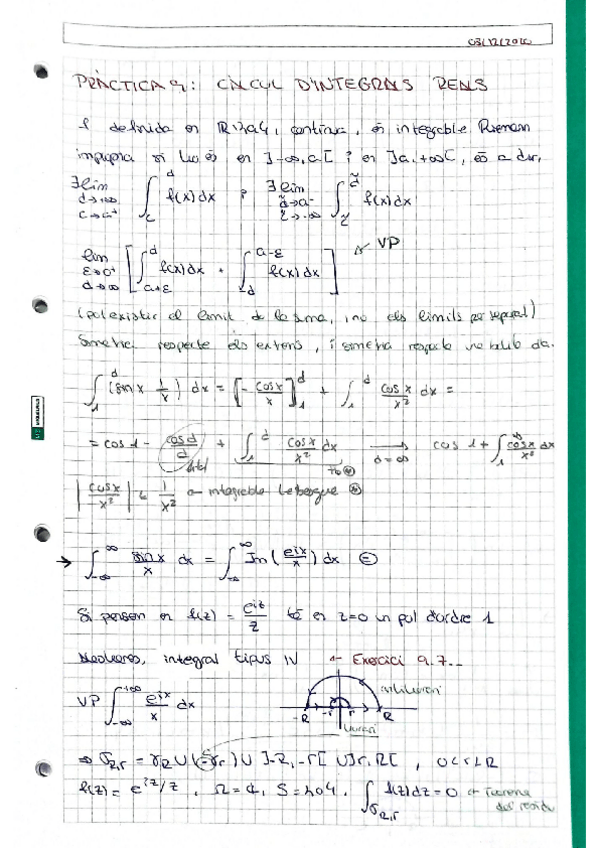 03/12/2020
PRÀCTICA 9: CÀLCUL D'INTEGRALS REALS
f definida en ℝ\{a}, contínua, és integrable Riemann
impròpia si ho és en ]-∞,a[ i en ]a,+∞[, és a dir,
∃lim d→+∞ c→a⁺ ∫_c^d f(x)dx i ∃lim d̃→a⁻ c̃→-∞ ∫_c̃^d̃ f(x)dx
lim ε→0⁺ d→∞ [∫_{a+ε}^d f(x)dx + ∫_{-d}^{a-ε} f(x)dx] VP
(pot existir el límit de la suma, i no els límits per separat)
Simetria respecte els extrems, i simetria respecte
∫_1^d (sin x 1/x) dx = [-cos x/x]_1^d + ∫_1^d cos x/x² dx =
= cos 1 - cos d/d + ∫_1^d cos x/x² dx → d→∞ cos 1 + ∫_1^∞ cos x/x² dx
|cos x/x²| ≤ 1/x² integrable Lebesgue
→ ∫_{-∞}^∞ sin x/x dx = ∫_{-∞}^∞ Im(e^{ix}/x) dx =
Si pensem en f(z) = e^{iz}/z té en z=0 un pol d'ordre 1
Aleshores, integral tipus IV ← Exercici 9.7..
VP ∫_{-∞}^{+∞} e^{ix}/x dx
-R -r r R
⇒ σ_{R,r} = γ_R ∪ (-γ_r) ∪ ]-R,-r[ ∪ ]r,R[ , 0<r<R
f(z) = e^{iz}/z , Ω = ℂ, S={0}. ∫_{σ_{R,r}} f(z)dz = 0 ← Teorema
dels residus